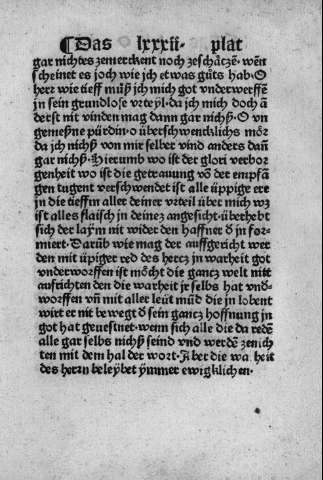 ¶Das lxxxii· plat
gar nichtes zemerckent noch zeschåtzẽ· wẽn
scheinet es joch wie jch etwas gůts hab· O
herr wie tieff můß jch mich got vnderwerffẽ
jn sein grundlose vrteyl· da jch mich doch ã
derst nit vinden mag dann gar nichß· O vn
gemeßne pürdin· o überschwencklichs mör·
da jch nichß von mir selber vind anders dañ
gar nichß· Hierumb wo ist der glori verbor
genheit wo ist die getrauung võ der empfã
gen tugent verschwendet ist alle üppige ere
jn die tieffin aller deiner vrteil über mich wz
ist alles flaisch jn deinez angesicht· überhebt
sich der laym nit wider den haffner đ jn for-
miert· Darũb wie mag der auffgericht wer
den mit üpiger red des hercz jn warheit got
vnderworffen ist möcht die gancz welt nitt
aufrichten den die warheit jr selbs hat vnd-
worffen vñ mit aller leüt můd die jn lobent
wirt er nit bewegt đ sein gancz hoffnung jn
got hat geuestnet· wenn sich alle die da redẽ
alle gar selbs nichß seind vnd werdẽ zenich
ten mit dem hal der wort· Aber die warheit
des herrn beleybet ymmer ewigklichen·